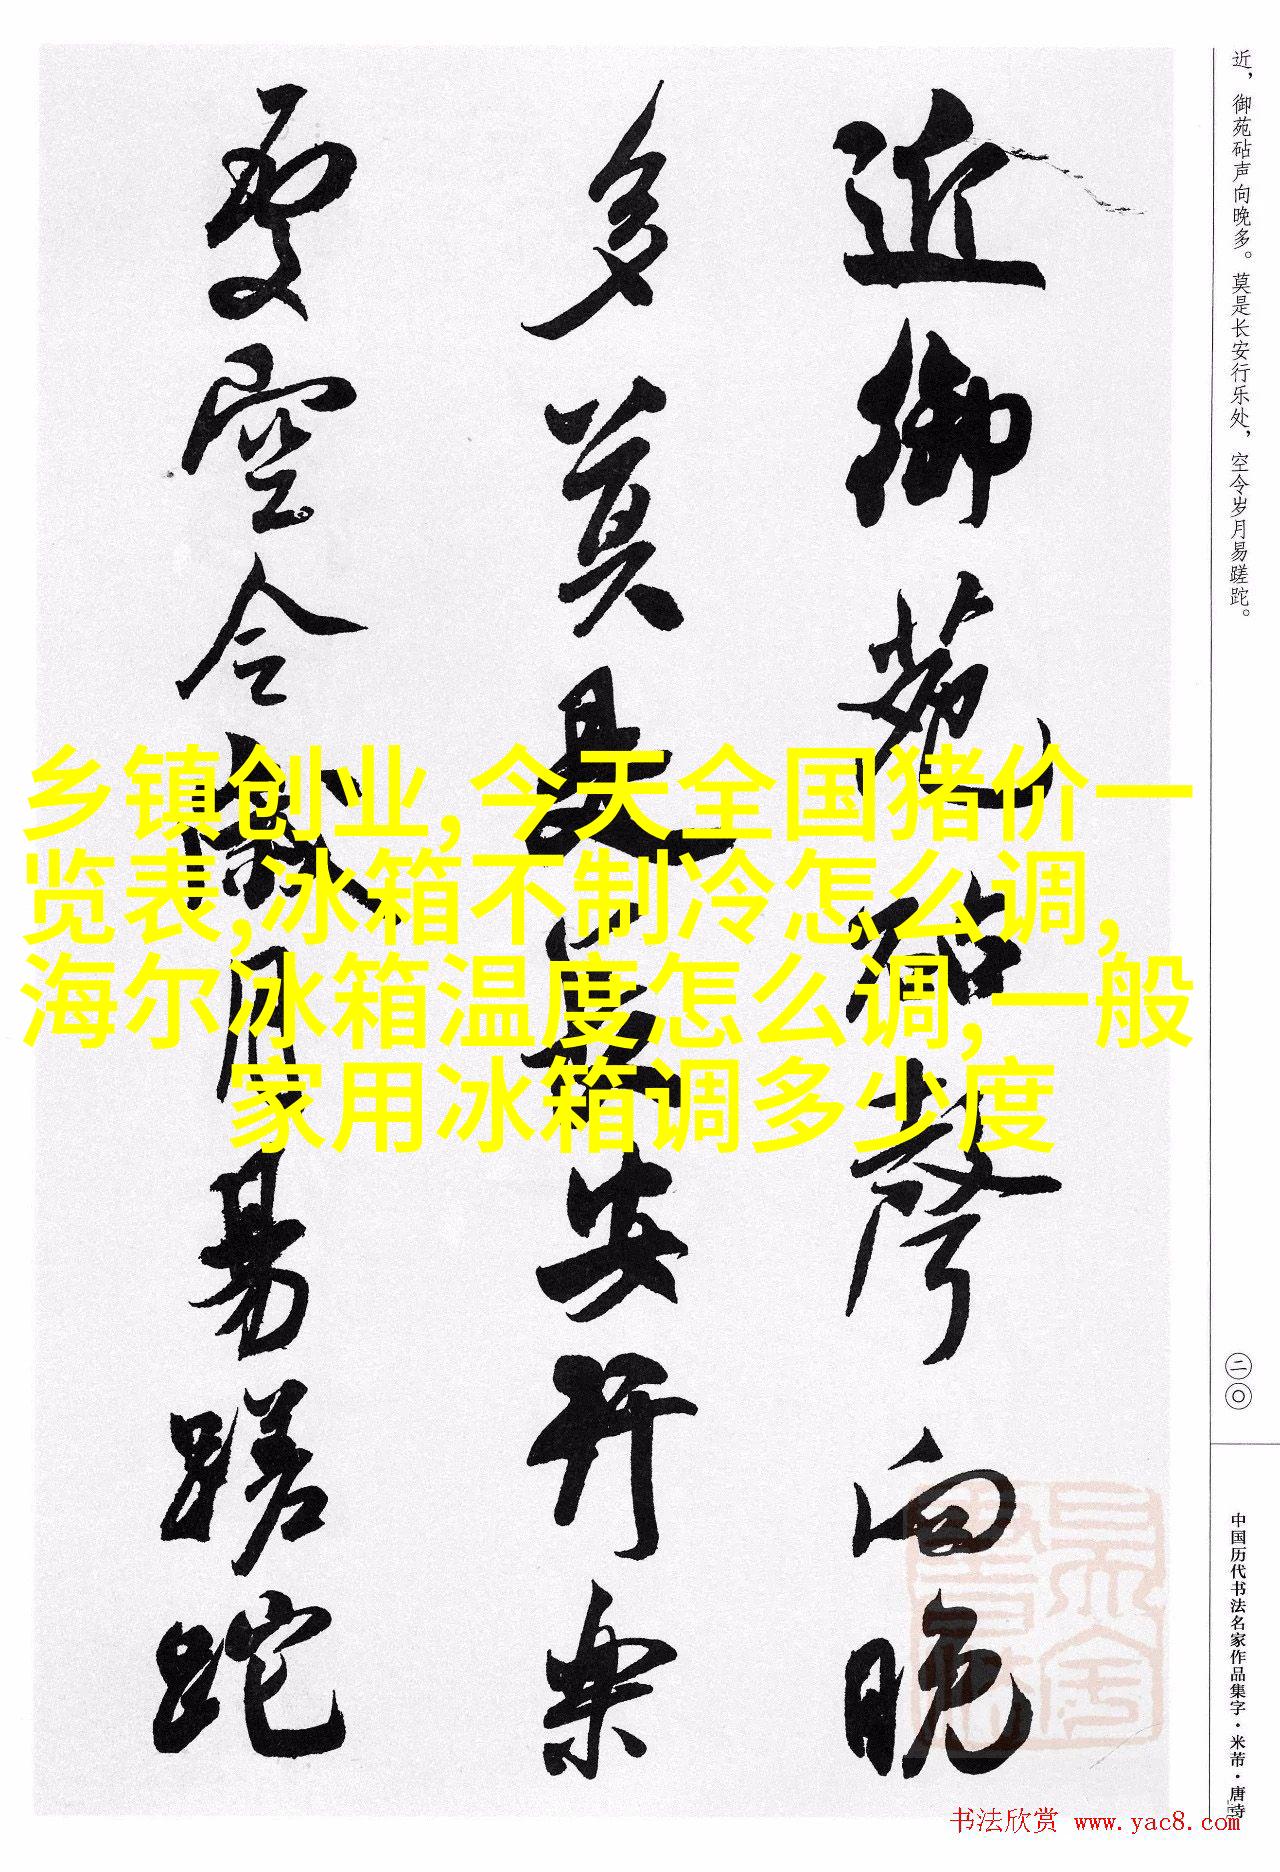 近，御苑砧声向晚多。莫是长安行乐处，空令岁月易蹉跎。
近御苑砧声向晚
多莫是长安行乐
处空令岁月易蹉跎
乡镇创业,今天全国猪价一
览表,冰箱不制冷怎么调,
海尔冰箱温度怎么调,一般
家用冰箱调多少度
二〇
中国历代书法名家作品集字·米芾·唐诗
书法欣赏 www.yac8.com